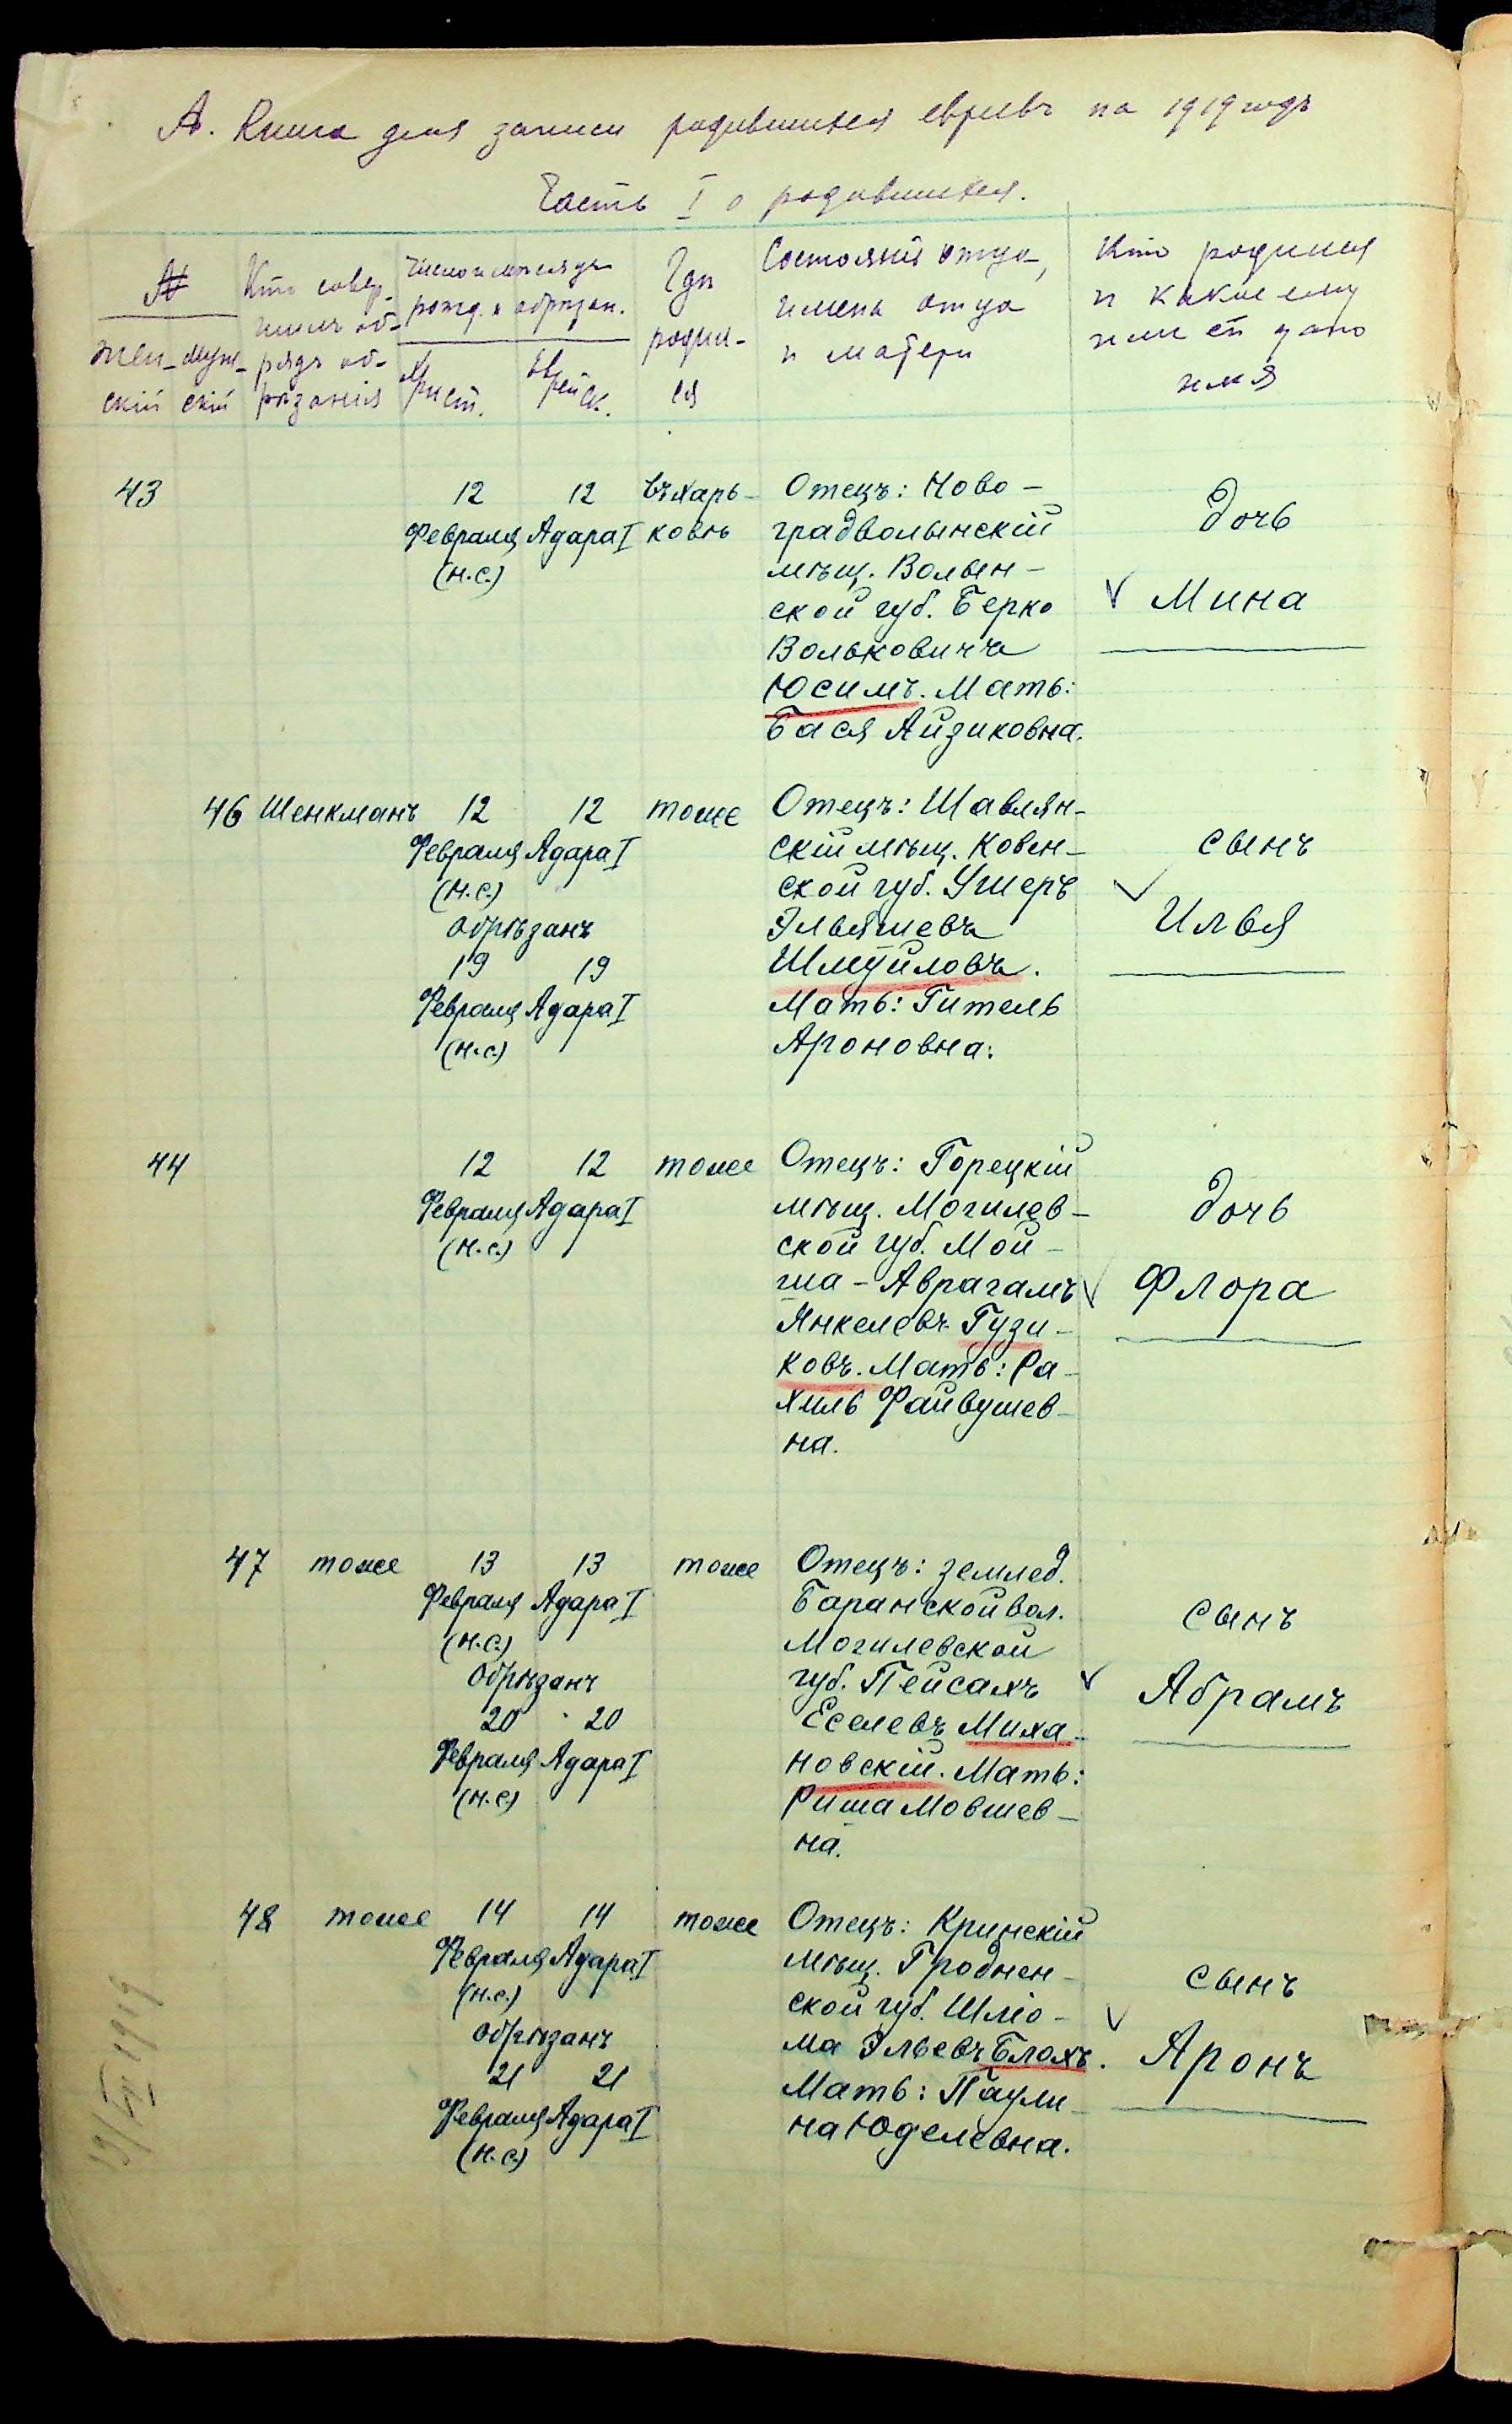 А. Книга для записи родившихся евреевъ на 1919 годъ
Часть I о родившихся.
№
жен- муж-
скій скій
Кто совер-
шилъ об-
рядъ об-
рѣзанія
Число и мѣсяцъ
рожд. и обрѣзан.
Христ.
Еврейск.
Гдѣ
родил-
ся
Состояніе отца,
имена отца
и матери
Кто родился
и какое ему
или ей дано
имя
43
12 12
Февраля Адара I
(н.с.)
въ Харь-
ковѣ
Отецъ: Ново-
градволынскій
мѣщ. Волын-
ской губ. Берко
Вольковичъ
Юсимъ. Мать:
Бася Айзиковна.
дочь
Мина
46 Шенкманъ
12 12
Февраля Адара I
(н.с.)
обрѣзанъ
19 19
Февраля Адара I
(н.с.)
тоже
Отецъ: Шавлян-
скій мѣщ. Ковен-
ской губ. Ушеръ
Эльяшевъ
Шмуйловъ.
Мать: Гитель
Ароновна.
сынъ
Илья
44
12 12
Февраля Адара I
(н.с.)
тоже
Отецъ: Горецкій
мѣщ. Могилев-
ской губ. Мой-
ша-Аврагамъ
Янкелевъ Гузи-
ковъ. Мать: Ра-
хиль Файвушев-
на.
дочь
Флора
47 тоже
13 13
Февраля Адара I
(н.с.)
Обрѣзанъ
20 20
Февраля Адара I
(н.с.)
тоже
Отецъ: землед.
Баранской вол.
Могилевской
губ. Пейсахъ
Еселевъ Миха-
новскій. Мать:
Риша Мовшев-
на.
сынъ
Абрамъ
48 тоже
14 14
Февраля Адара I
(н.с.)
обрѣзанъ
21 21
Февраля Адара I
(н.с.)
тоже
Отецъ: Кринскій
мѣщ. Гроднен-
ской губ. Шліо-
ма Эльевъ Блохъ.
Мать: Паули-
на Юделевна.
сынъ
Аронъ